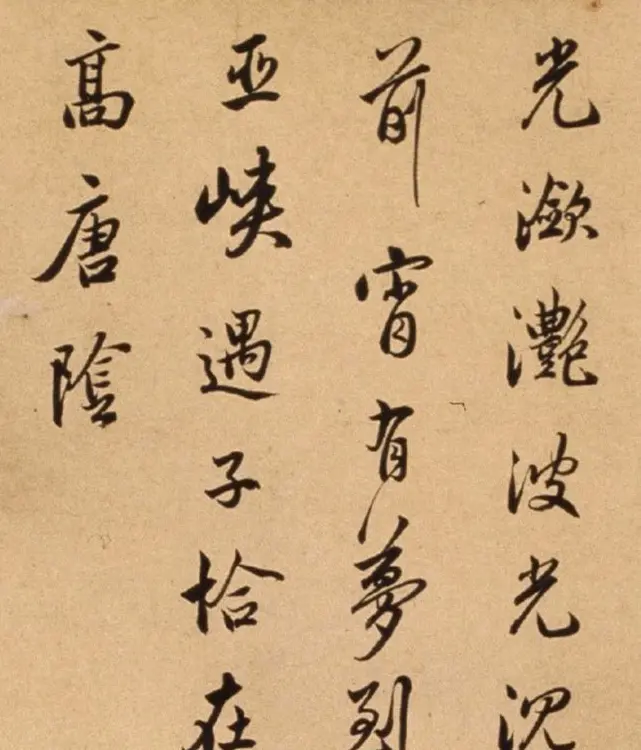 光瀲灔波光沉
前宵有夢到
巫峽遇子恰在
高唐陰